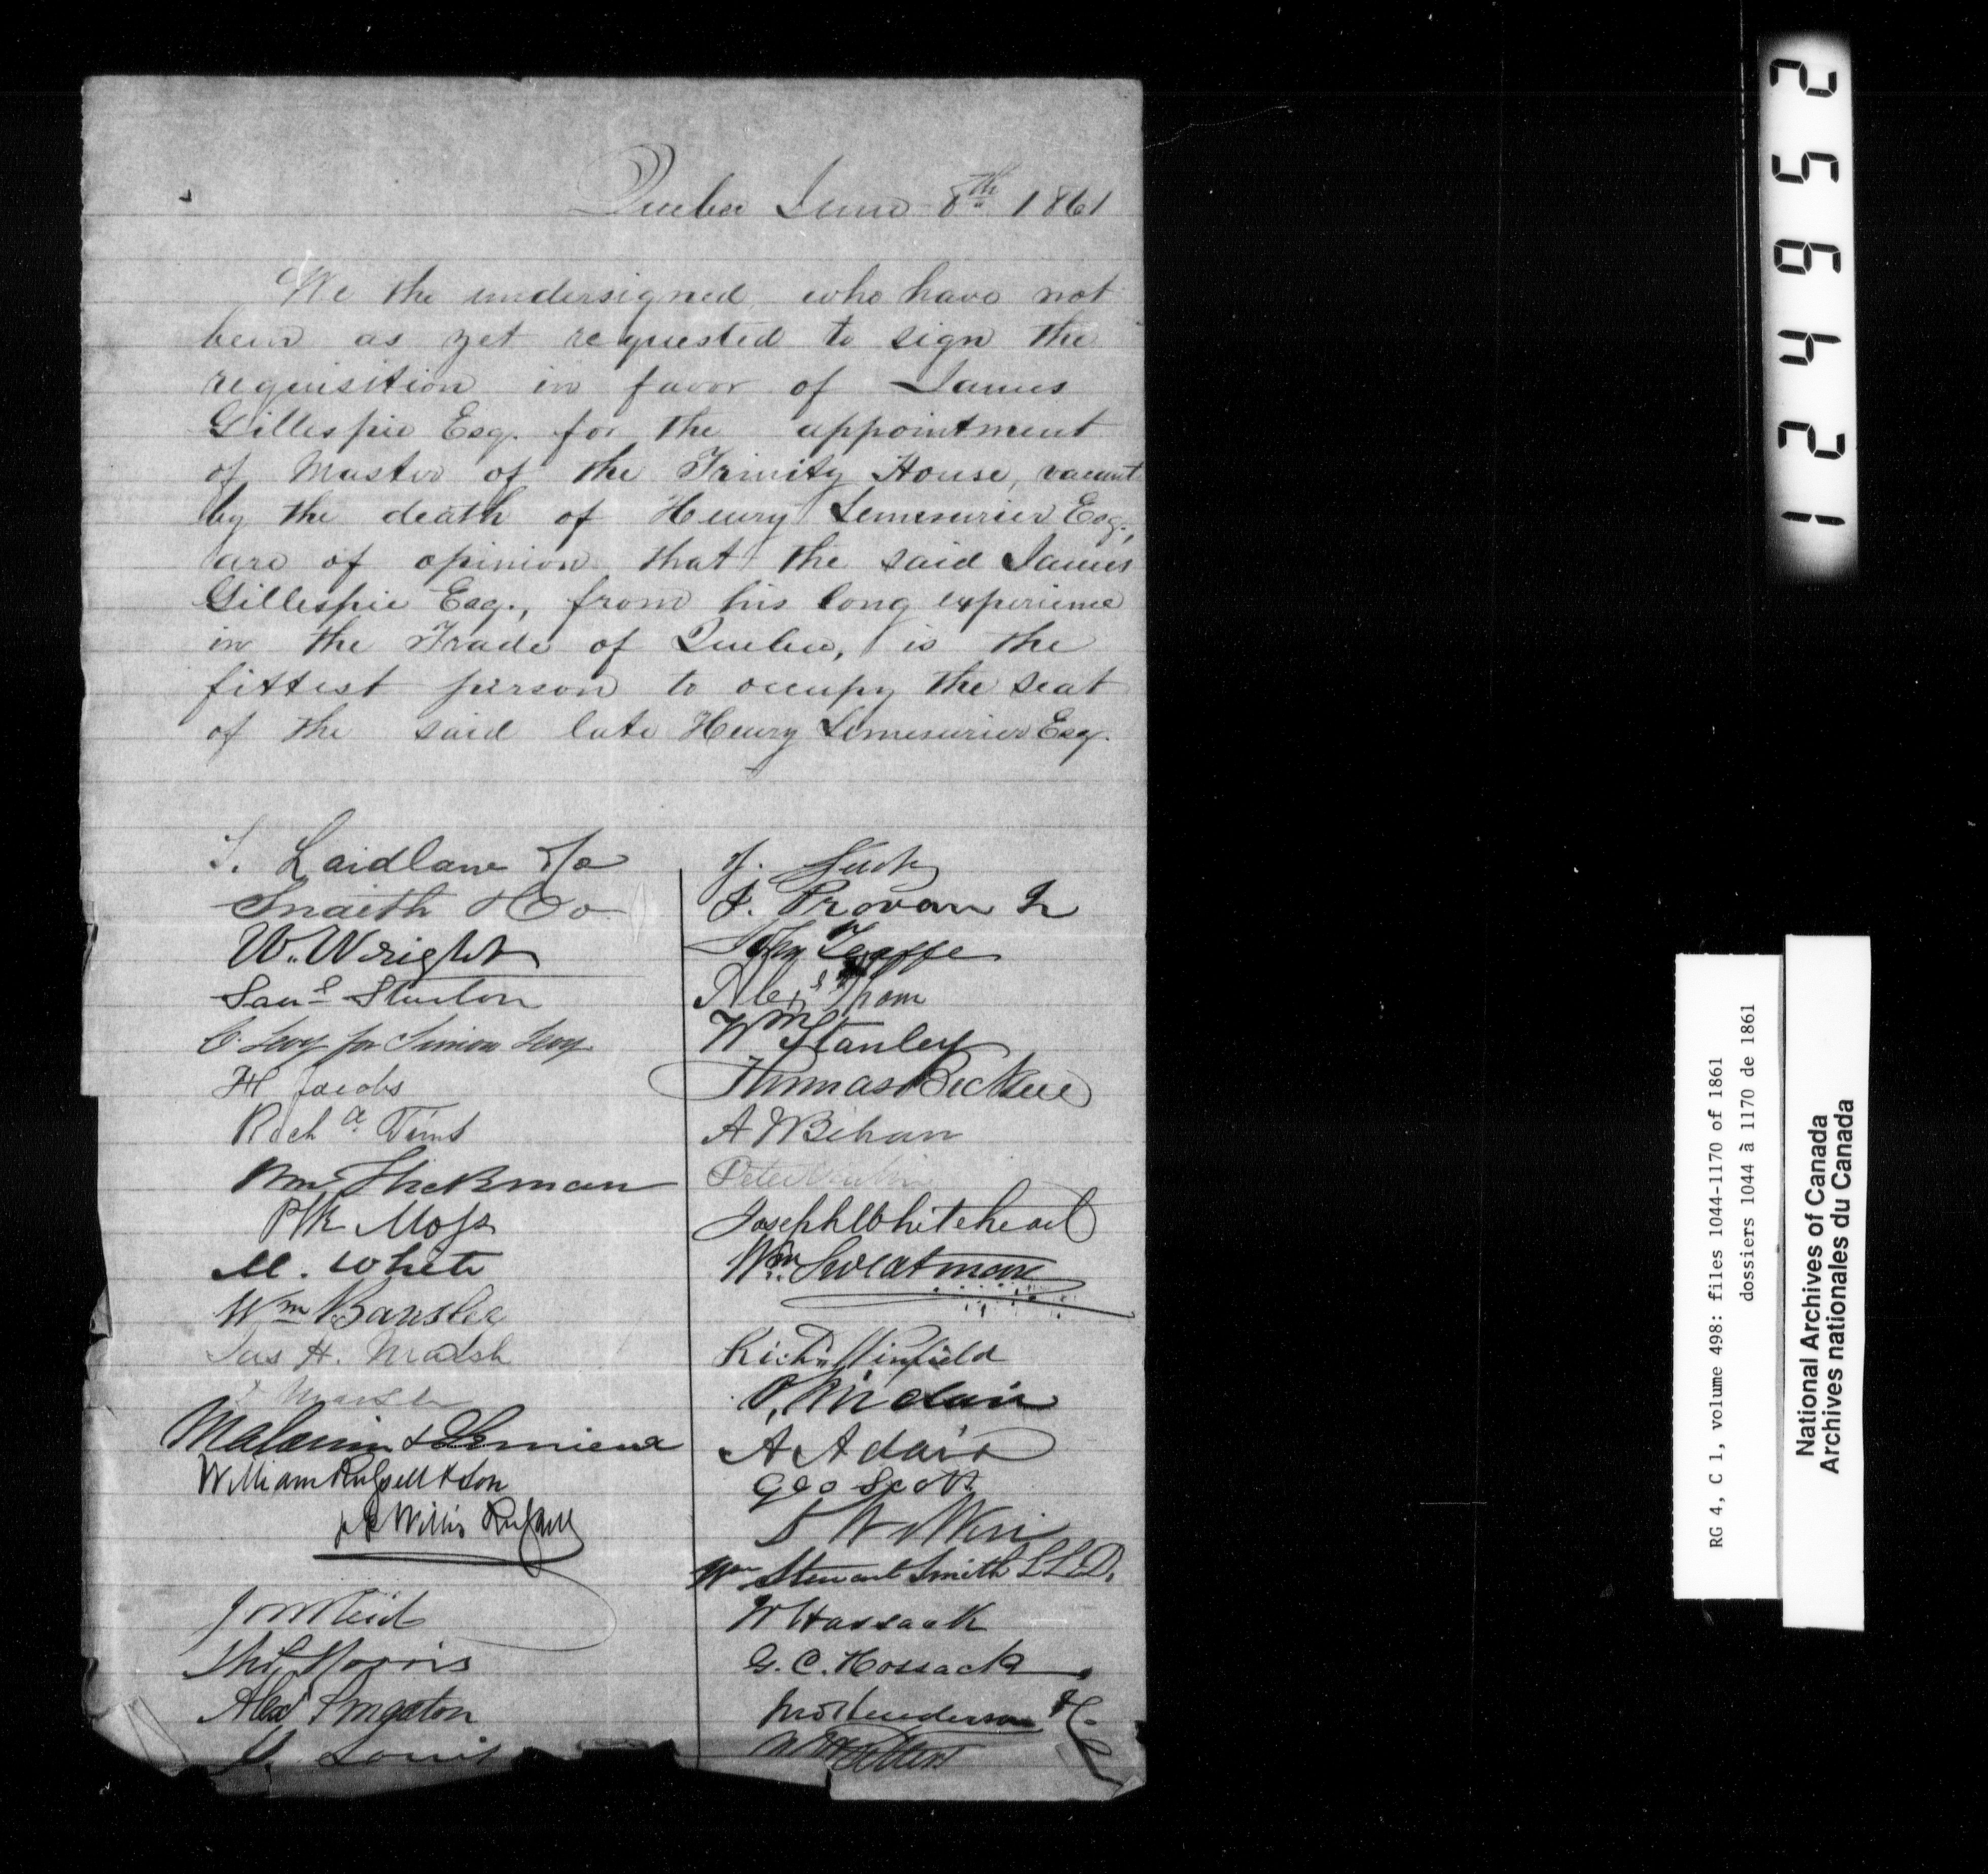 Quebec June 8th 1861
We the undersigned, who have not
been as yet requested to sign the
requisition in favor of James
Gillespie Esq. for the appointment
of Master of the Trinity House, vacant
by the death of Henry Lemesurier Esq.,
are of opinion that the said James
Gillespie Esq., from his long experience
in the Trade of Quebec, is the
fittest person to occupy the seat
of the said late Henry Lemesurier Esq.
Laidlaw & Co
Snaith & Co
W. Wright
Saml
C. Levy for Simion Levy
H Jacobs
Richd
Wm Hickman
P/k Moss
M. White
Wm
Jas H. Marsh
& Lemieux
William Russell & Son
Willis Russell
Morris
Alex
J. Provan Jr
John
Alexr Thom
Wm Stanley
Thomas
A
Peter
Joseph Whitehead
Wm Sweatman
Richd Winfield
A Adair
Geo Scott
Wm Stewart Smith L L D.
W Hossack
G. C. Hossack
Henderson & Co
1 2 4 4 6 9 5 2
RG 4, C 1, volume 498: files 1044-1170 of 1861
dossiers 1044 à 1170 de 1861
National Archives of Canada
Archives nationales du Canada